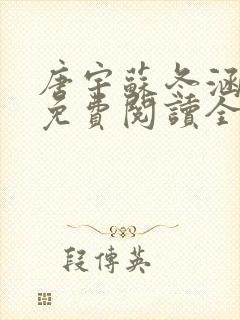 唐宇蘇冬涵
免費閱讀全
段傳英